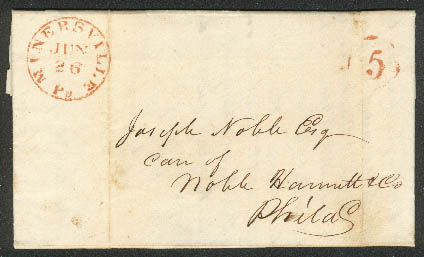 MINERSVILLE Pa
JUN
26
5
Joseph Noble Esq
Care of
Noble Hammett & Co
Philada